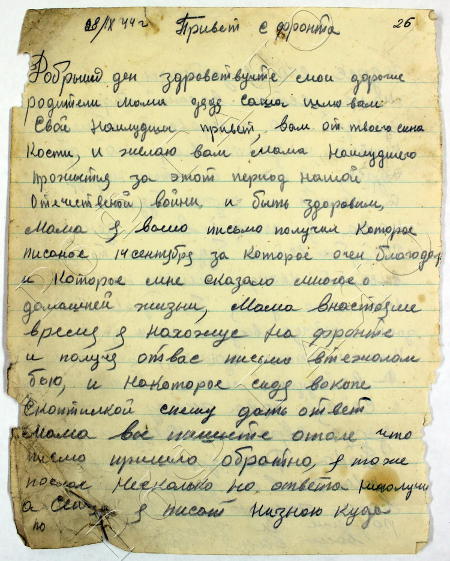 28/IX 44 г Привет с фронта 26
Добрыий ден здравствуите мои дорогие
родители мама дядя Саша шлю вам
Свой наилудши привет, вам от твоего сина
Кости, и желаю вам мама наилудшего
прожития за этот период нашой
Отечественой войни и быть здоровим,
Мама я вашо письмо получил которое
писаное 14 сентября за которое очен благодар
и которое мне сказало многое о
домашней жизни, Мама внастояще
время я нахожус на фронте
и получя отвас письмо втежолом
бою, и накоторое сидя вокопе
Скоптилкой спешу дать ответ
Мама вы пишете отом что
письмо пришло обратно, я тоже
послал несколько но ответа неполучи
а я писат незнаю куда
по